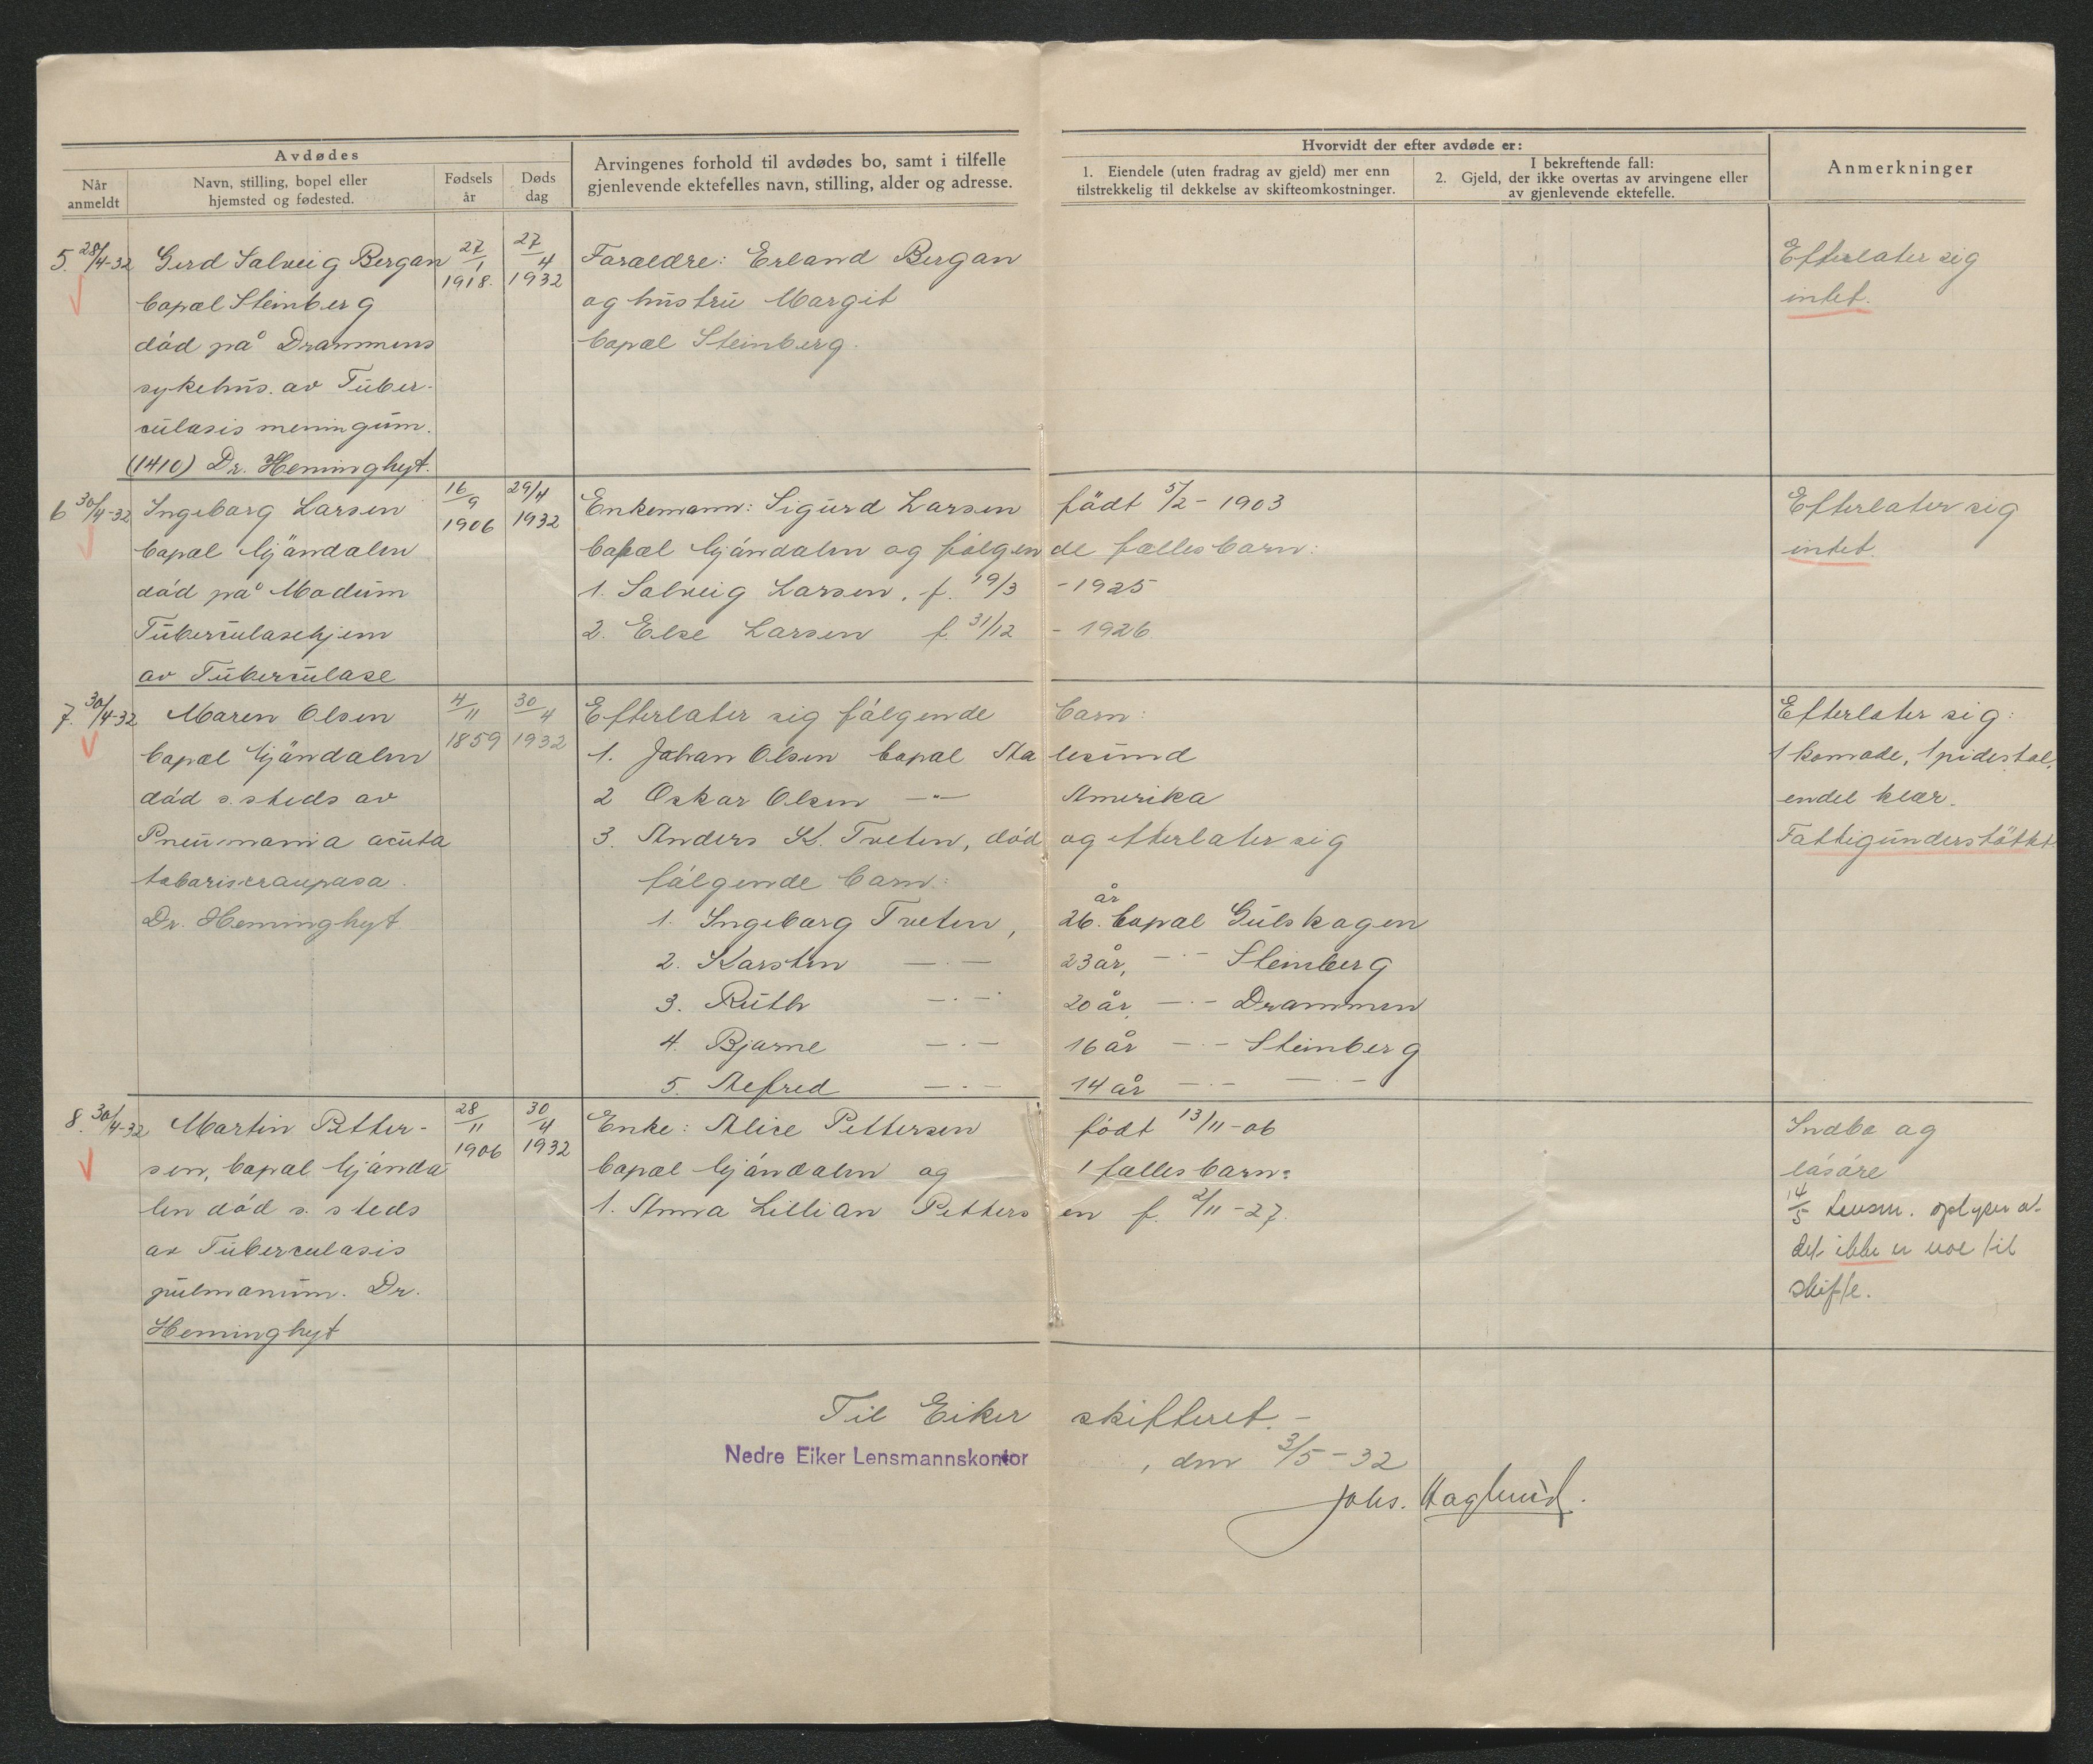 Avdødes
Når anmeldt
Navn, stilling, bopel eller hjemsted og fødested.
Fødsels år
Døds dag
Arvingenes forhold til avdødes bo, samt i tilfelle
gjenlevende ektefelles navn, stilling, alder og adresse.
Hvorvidt der efter avdøde er:
1. Eiendele (uten fradrag av gjeld) mer enn
tilstrekkelig til dekkelse av skifteomkostninger.
I bekreftende fall:
2. Gjeld, der ikke overtas av arvingene eller
av gjenlevende ektefelle.
Anmerkninger
5. 28/4-32 Gerd Solveig Bergan 27/1 1918. 27/4 1932
bopæl Steinberg
død på Drammens
sykehus. av Tuber-
culosis meningum.
(1410) Dr. Heminghyt.
Foræeldre: Erland Bergan
og hustru Margit
bopæl Steinberg.
Efterlater sig
intet.
6 30/4-32 Ingeborg Larsen 16/9 1906 29/4 1932
bopæl Gjøndalen
død på Modum
Tuberculosehjem
av Tuberculose
Enkemann: Sigurd Larsen født 5/2 - 1903
bopæl Mjøndalen og følgende fælles barn:
1. Solveig Larsen, f. 19/3 - 1925
2. Else Larsen f. 31/12 - 1926
Efterlater sig
intet.
7. 30/4-32 Maren Olsen 4/11 1859 30/4 1932
bopæl Mjøndalen
død s. steds av
Pneumonia acuta
Dr. Heminghyt
Efterlater sig følgende barn:
1. Johan Olsen bopæl Ålesund
2 Oskar Olsen -"- Amerika
3. Anders K. Tveten, død og efterlater sig
følgende barn:
1. Ingeborg Tveten, 26 år. bopæl Gulskogen
2. Karsten -.- 23 år, -.- Steinberg
3. Ruth -.- 20 år, -.- Drammen
4. Bjarne -.- 16 år -.- Steinberg
5. Alfred -.- 14 år -.- -.-
Efterlater sig:
1 komode, 1 pidestal,
endel klær.
Fattigunderstøttet
8. 30/4-32 Martin Petter- 28/11 1906 30/4 1932
sen, bopæl Mjønda
len død s. steds
av Tuberculosis
pulmonum. Dr.
Heminghyt
Enke: Alice Pettersen født 13/11-06
bopæl Mjøndalen og 1 fælles barn:
1. Anna Lillian Pettersen f. 2/11-27.
Indbo og
løsøre
14/5 Lensm. oplyser at
det ikke er noe til
skifte.
Til Eiker skifteret.-
Nedre Eiker Lensmannskontor, den 3/5-32
Johs. Haglund.